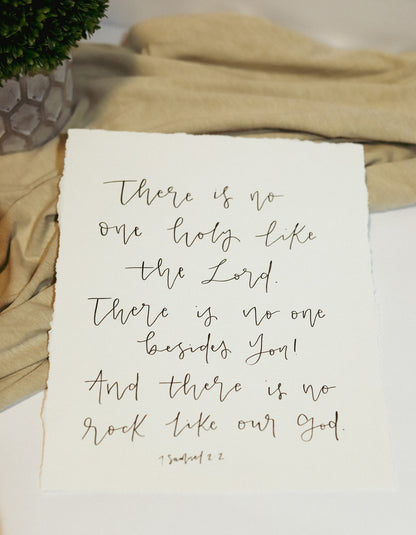 There is no
one holy like
the Lord.
There is no one
besides You!
And there is no
rock like our God.
1 Samuel 2 2